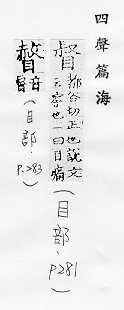 四聲篇海
督都谷切正也說文
云察也一曰目痛
(目部．P.281)
音
督
(目部．P.283)